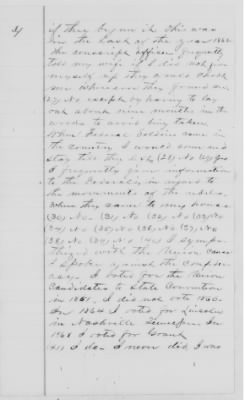 3/
if they begun it this was
in the last of the year 1862
The conscript officers frequently
told my wife if I did not give
myself up they would shoot
me wherever they found me
27) No except by having to lay
out about nine months in the
woods to avoid being taken
When Federal Soldiers came in
the country I would come and
stay till they left (28) No (29) Yes
I frequently gave information
to the Federals in regard to
the movements of the rebels
when they came to my house
(30) No (31) No (32) No (33) No
(34) No (35) No (36) No (37) No
(38) No (39) No (40) I sympa-
thized with the Union Cause
I Spoke against the Confeder-
acy. I voted for the Union
Candidates to State Convention
in 1861. I did not vote 1860.
In 1864 I voted for Lincoln
in Nashville Tennessee. In
1868 I voted for Grant
(41) I do. I never did I was